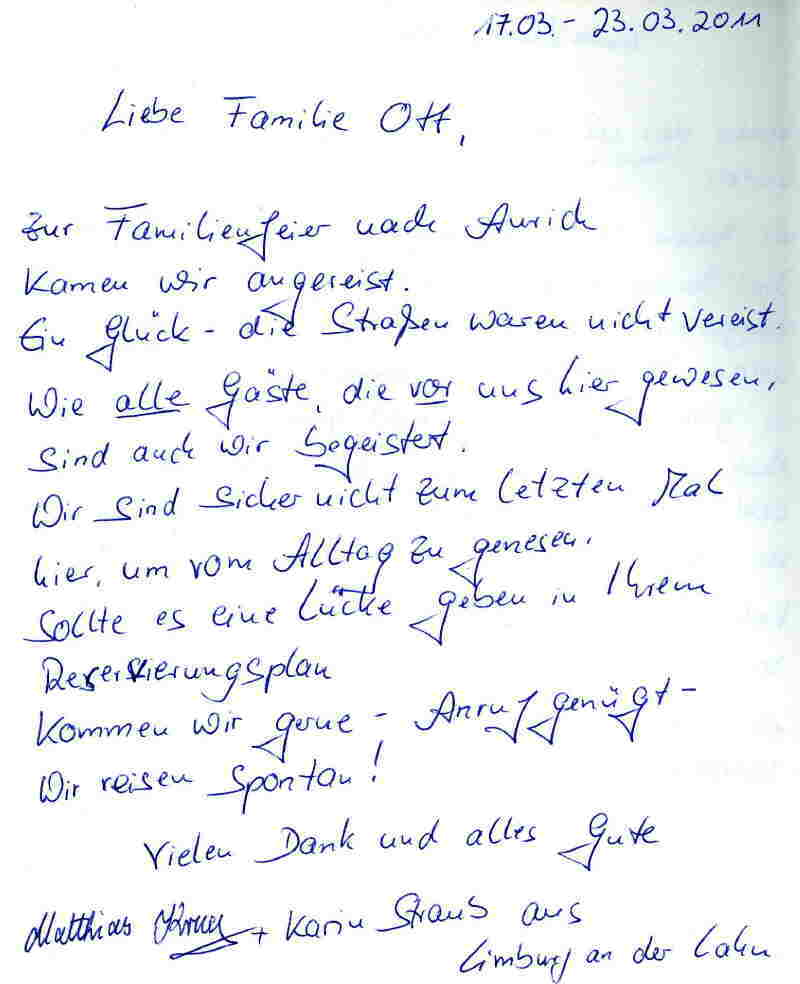 17.03. - 23.03.2011
Liebe Familie Ott,
Zur Familienfeier nach Aurich
kamen wir angereist.
Ein Glück - die Straßen waren nicht vereist.
Wie alle Gäste, die vor uns hier gewesen,
sind auch wir begeistert.
Wir sind sicher nicht zum letzten Mal
hier, um vom Alltag zu genesen.
Sollte es eine Lücke geben in Ihrem
Reservierungsplan
kommen wir gerne - Anruf genügt -
Wir reisen spontan!
Vielen Dank und alles Gute
Matthias + Karin Straub aus
Limburg an der Lahn